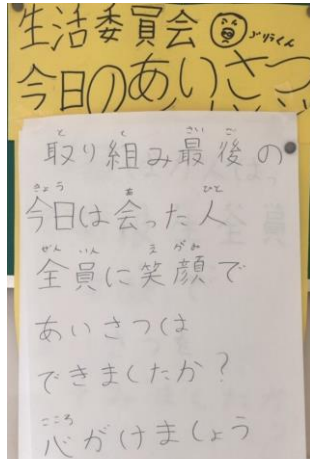 生活委員会
今日のあいさつ
取り組み最後の
今日は会った人
全員に笑顔で
あいさつは
できましたか？
心がけましょう